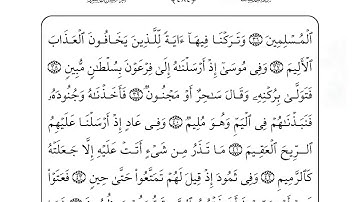 ٱلۡمُسۡلِمِينَ ٣٦ وَتَرَكۡنَا فِيهَآ ءَايَةٗ لِّلَّذِينَ يَخَافُونَ ٱلۡعَذَابَ
ٱلۡأَلِيمَ ٣٧ وَفِي مُوسَىٰٓ إِذۡ أَرۡسَلۡنَٰهُ إِلَىٰ فِرۡعَوۡنَ بِسُلۡطَٰنٖ مُّبِينٖ ٣٨
فَتَوَلَّىٰ بِرُكۡنِهِۦ وَقَالَ سَٰحِرٌ أَوۡ مَجۡنُونٞ ٣٩ فَأَخَذۡنَٰهُ وَجُنُودَهُۥ
فَنَبَذۡنَٰهُمۡ فِي ٱلۡيَمِّ وَهُوَ مُلِيمٞ ٤٠ وَفِي عَادٍ إِذۡ أَرۡسَلۡنَا عَلَيۡهِمُ
ٱلرِّيحَ ٱلۡعَقِيمَ ٤١ مَا تَذَرُ مِن شَيۡءٍ أَتَتۡ عَلَيۡهِ إِلَّا جَعَلَتۡهُ
كَٱلرَّمِيمِ ٤٢ وَفِي ثَمُودَ إِذۡ قِيلَ لَهُمۡ تَمَتَّعُواْ حَتَّىٰ حِينٖ ٤٣ فَعَتَوۡاْ